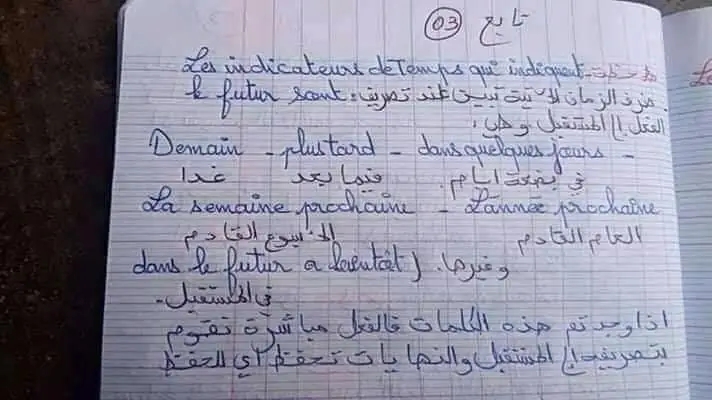 تابع 03
Les indicateurs de Temps qui indiquent ملاحظة
le futur sont: ظرف الزمان لا تبين عند تصريف
الفعل إلى المستقبل وهي:
Demain - plus tard - dans quelques jours -
غدا فيما بعد في بضعة ايام.
La semaine prochaine - L'année prochaine
الاسبوع القادم العام القادم
dans le futur a bientôt) وغيرها.
في المستقبل -
اذا وجدتم هذه الكلمات فالفعل مباشرة نقوم
بتصريفه إلى المستقبل والنهايات تحفظ أي للحفظ